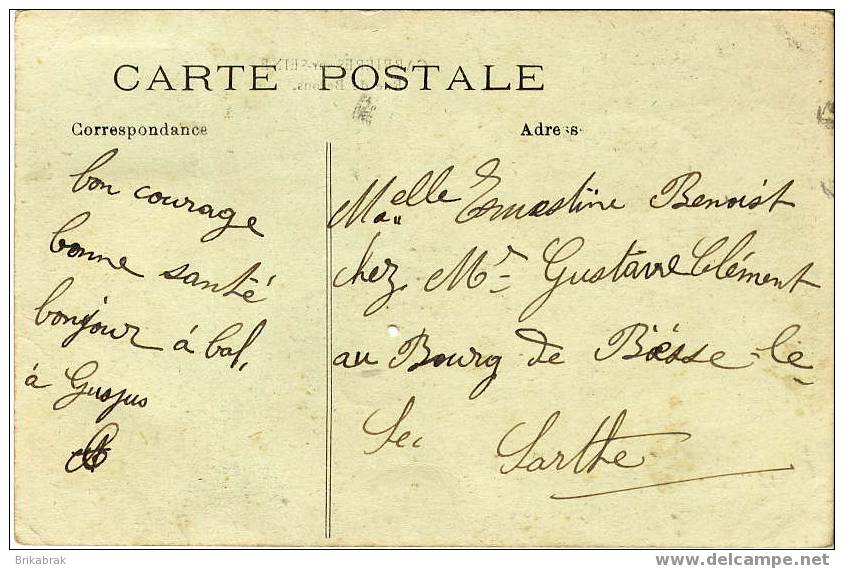 CARTE POSTALE
Correspondance
Adress
bon courage
bonne santé
bonjour à bal,
à Gusjus
Ma elle Ernestine Benoist
chez Mr Gustave Clément
au Bourg de Bèsse-le-
Sec
Sarthe
Brikabrak
delcampe.net